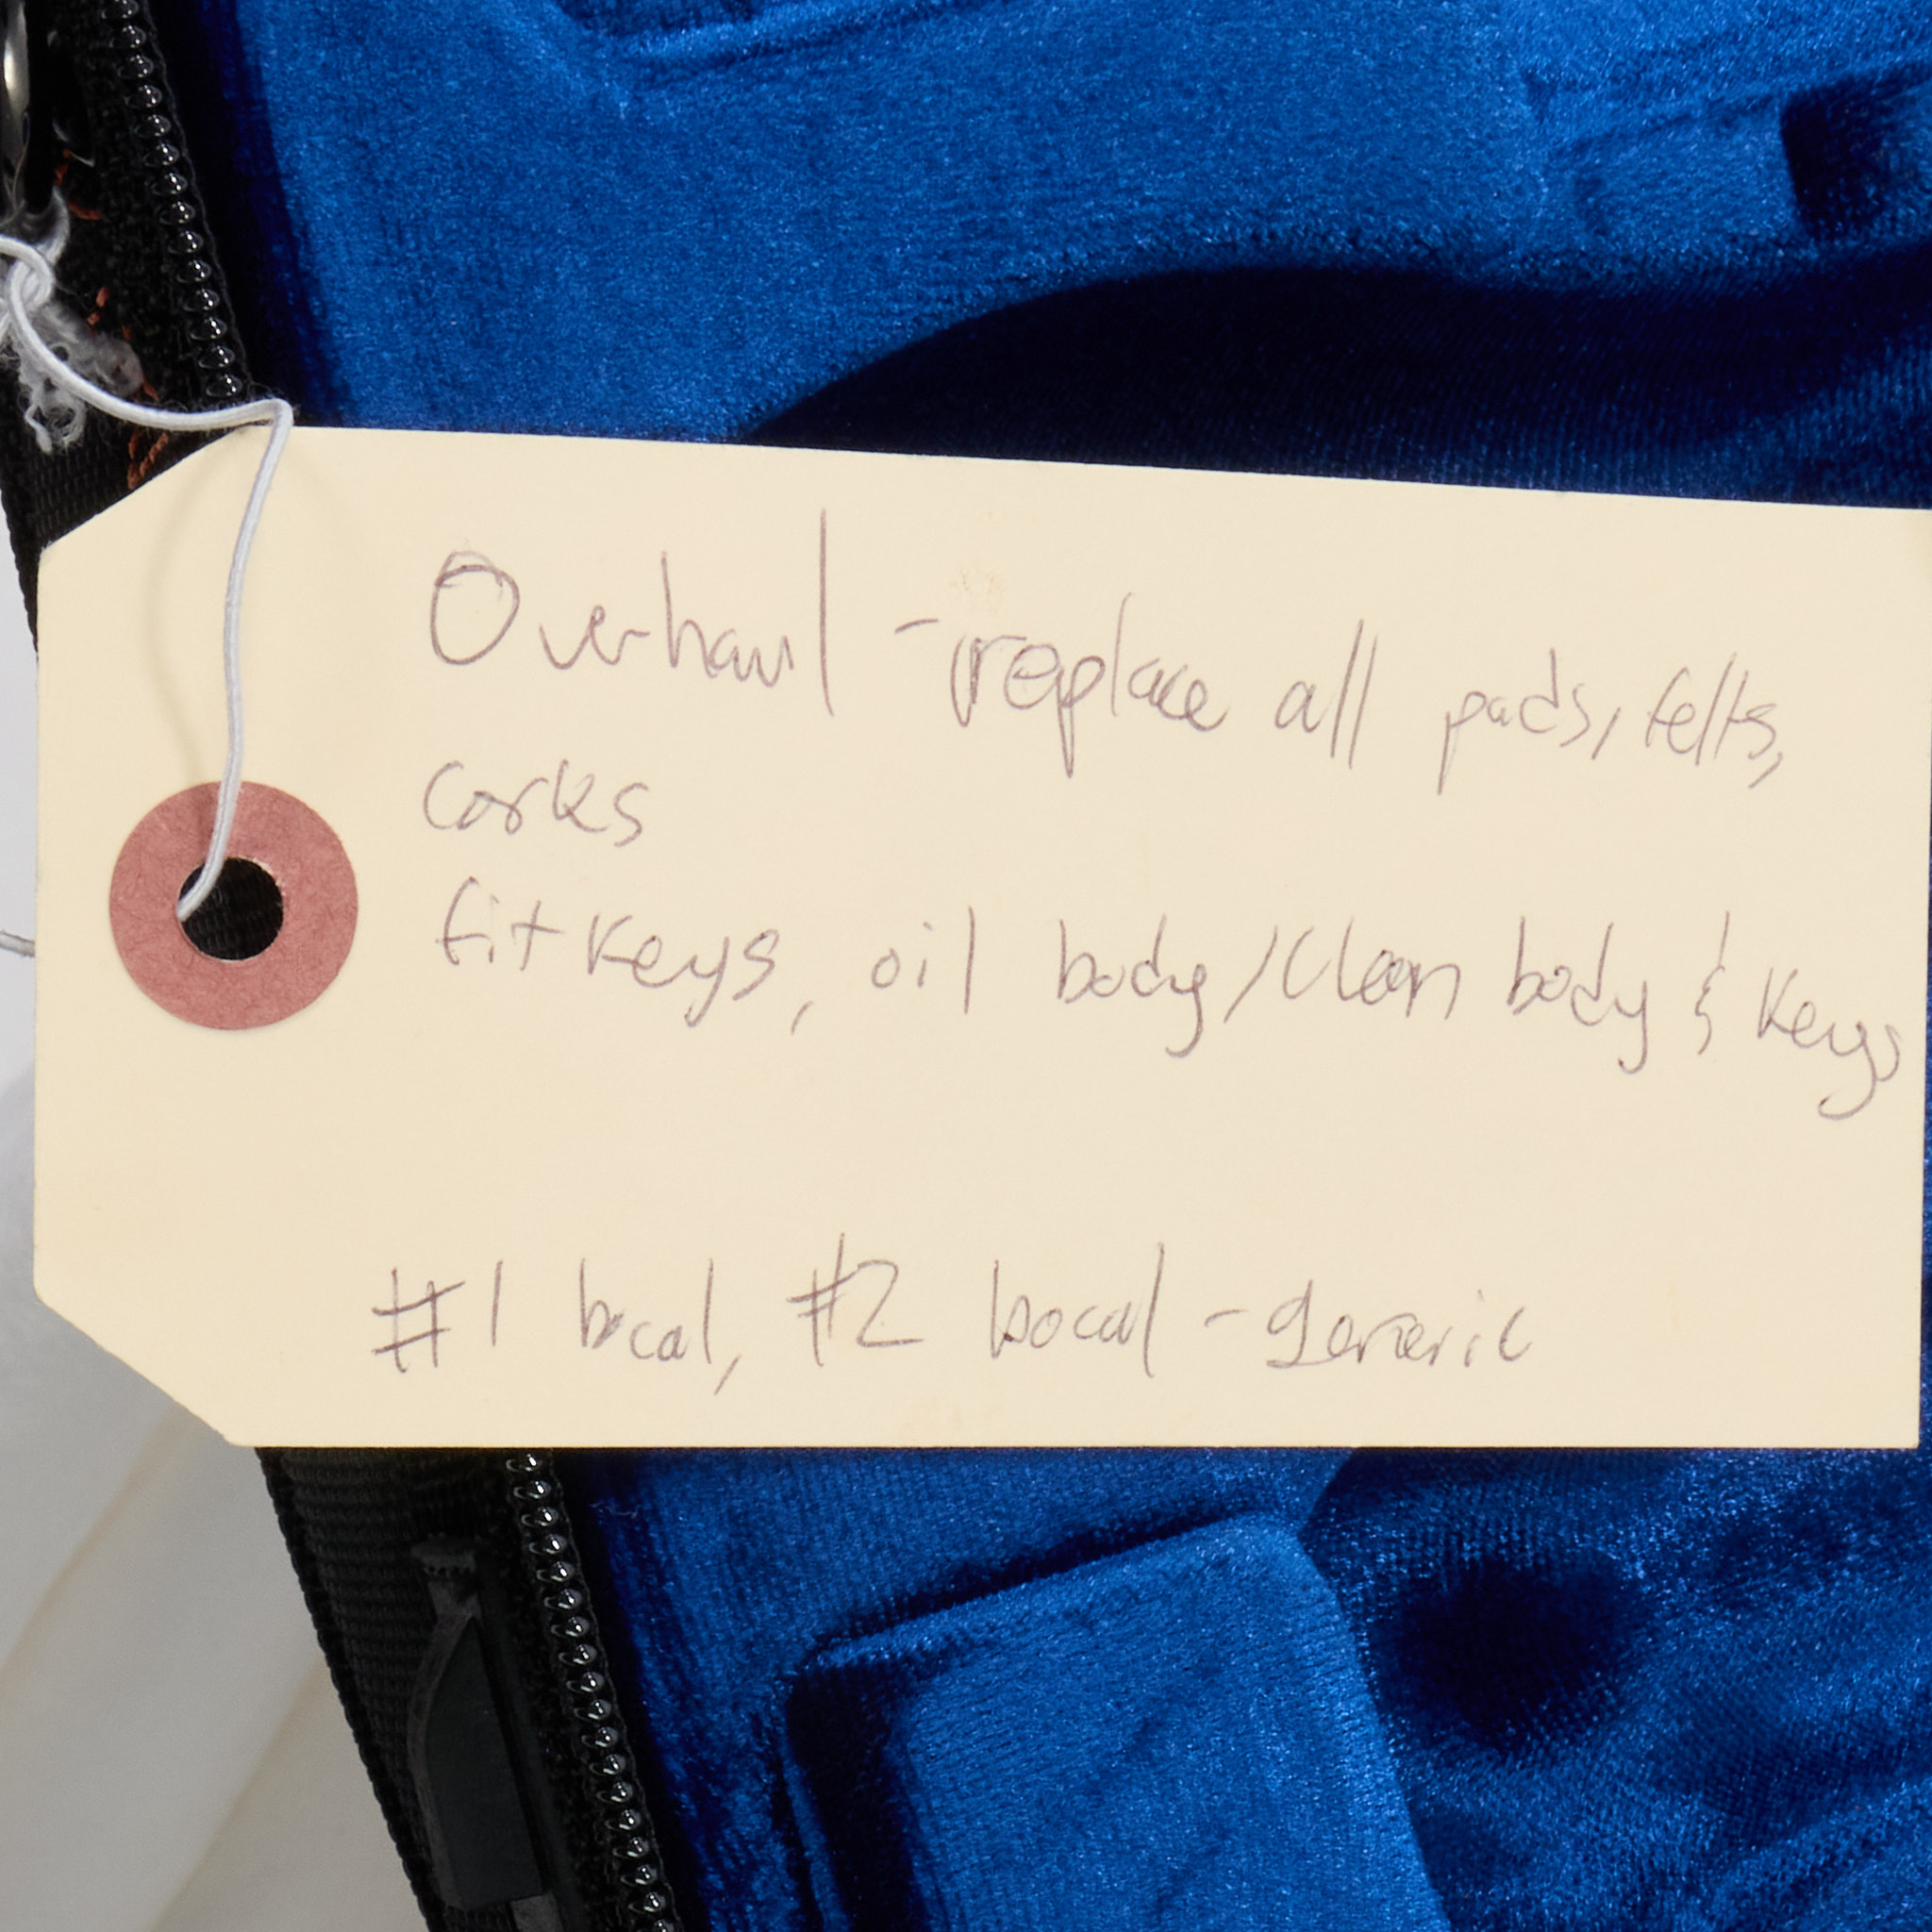 Overhaul - replace all pads, felts,
corks
fit keys, oil body/clean body & keys
#1 bocal, #2 bocal - generic